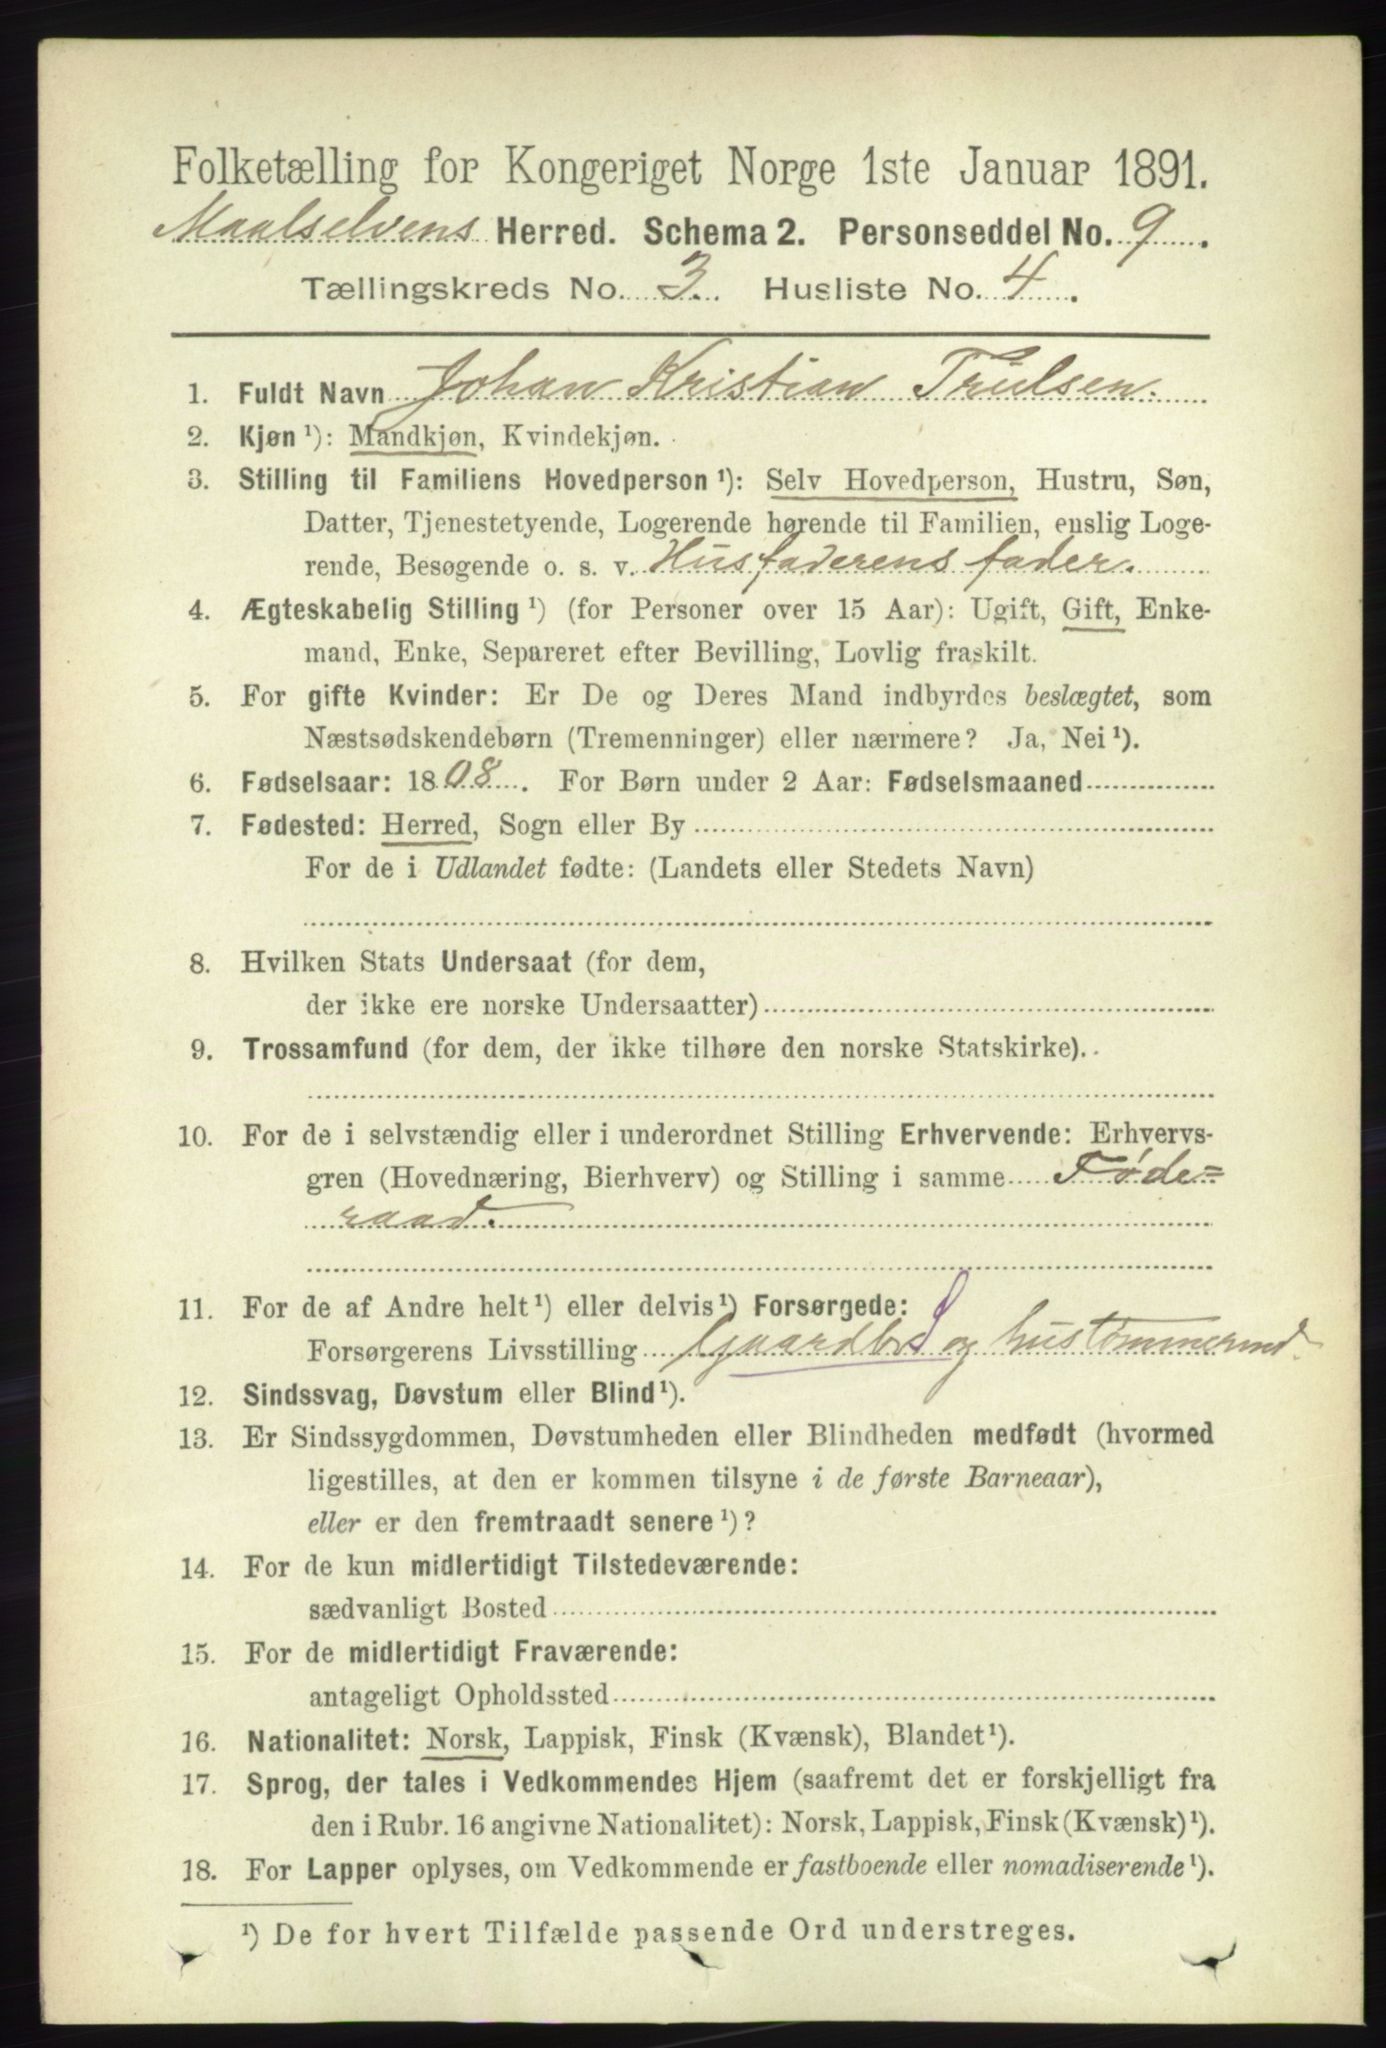 Folketælling for Kongeriget Norge 1ste Januar 1891.
Maalselvens Herred. Schema 2. Personseddel No. 9.
Tællingskreds No. 3. Husliste No. 4.
1. Fuldt Navn Johan Kristian Trulsen.
2. Kjøn ¹): Mandkjøn, Kvindekjøn.
3. Stilling til Familiens Hovedperson ¹): Selv Hovedperson, Hustru, Søn,
Datter, Tjenestetyende, Logerende hørende til Familien, enslig Loge-
rende, Besøgende o. s. v. Husfaderens fader.
4. Ægteskabelig Stilling ¹) (for Personer over 15 Aar): Ugift, Gift, Enke-
mand, Enke, Separeret efter Bevilling, Lovlig fraskilt.
5. For gifte Kvinder: Er De og Deres Mand indbyrdes beslægtet, som
Næstsødskendebørn (Tremenninger) eller nærmere? Ja, Nei ¹).
6. Fødselsaar: 1808. For Børn under 2 Aar: Fødselsmaaned
7. Fødested: Herred, Sogn eller By
For de i Udlandet fødte: (Landets eller Stedets Navn)
8. Hvilken Stats Undersaat (for dem,
der ikke ere norske Undersaatter)
9. Trossamfund (for dem, der ikke tilhøre den norske Statskirke).
10. For de i selvstændig eller i underordnet Stilling Erhvervende: Erhvervs-
gren (Hovednæring, Bierhverv) og Stilling i samme Føde=
raad.
11. For de af Andre helt ¹) eller delvis ¹) Forsørgede:
Forsørgerens Livsstilling Gaardbr og hustømmermd.
12. Sindssvag, Døvstum eller Blind ¹).
13. Er Sindssygdommen, Døvstumheden eller Blindheden medfødt (hvormed
ligestilles, at den er kommen tilsyne i de første Barneaar),
eller er den fremtraadt senere ¹)?
14. For de kun midlertidigt Tilstedeværende:
sædvanligt Bosted
15. For de midlertidigt Fraværende:
antageligt Opholdssted
16. Nationalitet: Norsk, Lappisk, Finsk (Kvænsk), Blandet ¹).
17. Sprog, der tales i Vedkommendes Hjem (saafremt det er forskjelligt fra
den i Rubr. 16 angivne Nationalitet): Norsk, Lappisk, Finsk (Kvænsk) ¹).
18. For Lapper oplyses, om Vedkommende er fastboende eller nomadiserende ¹).
¹) De for hvert Tilfælde passende Ord understreges.